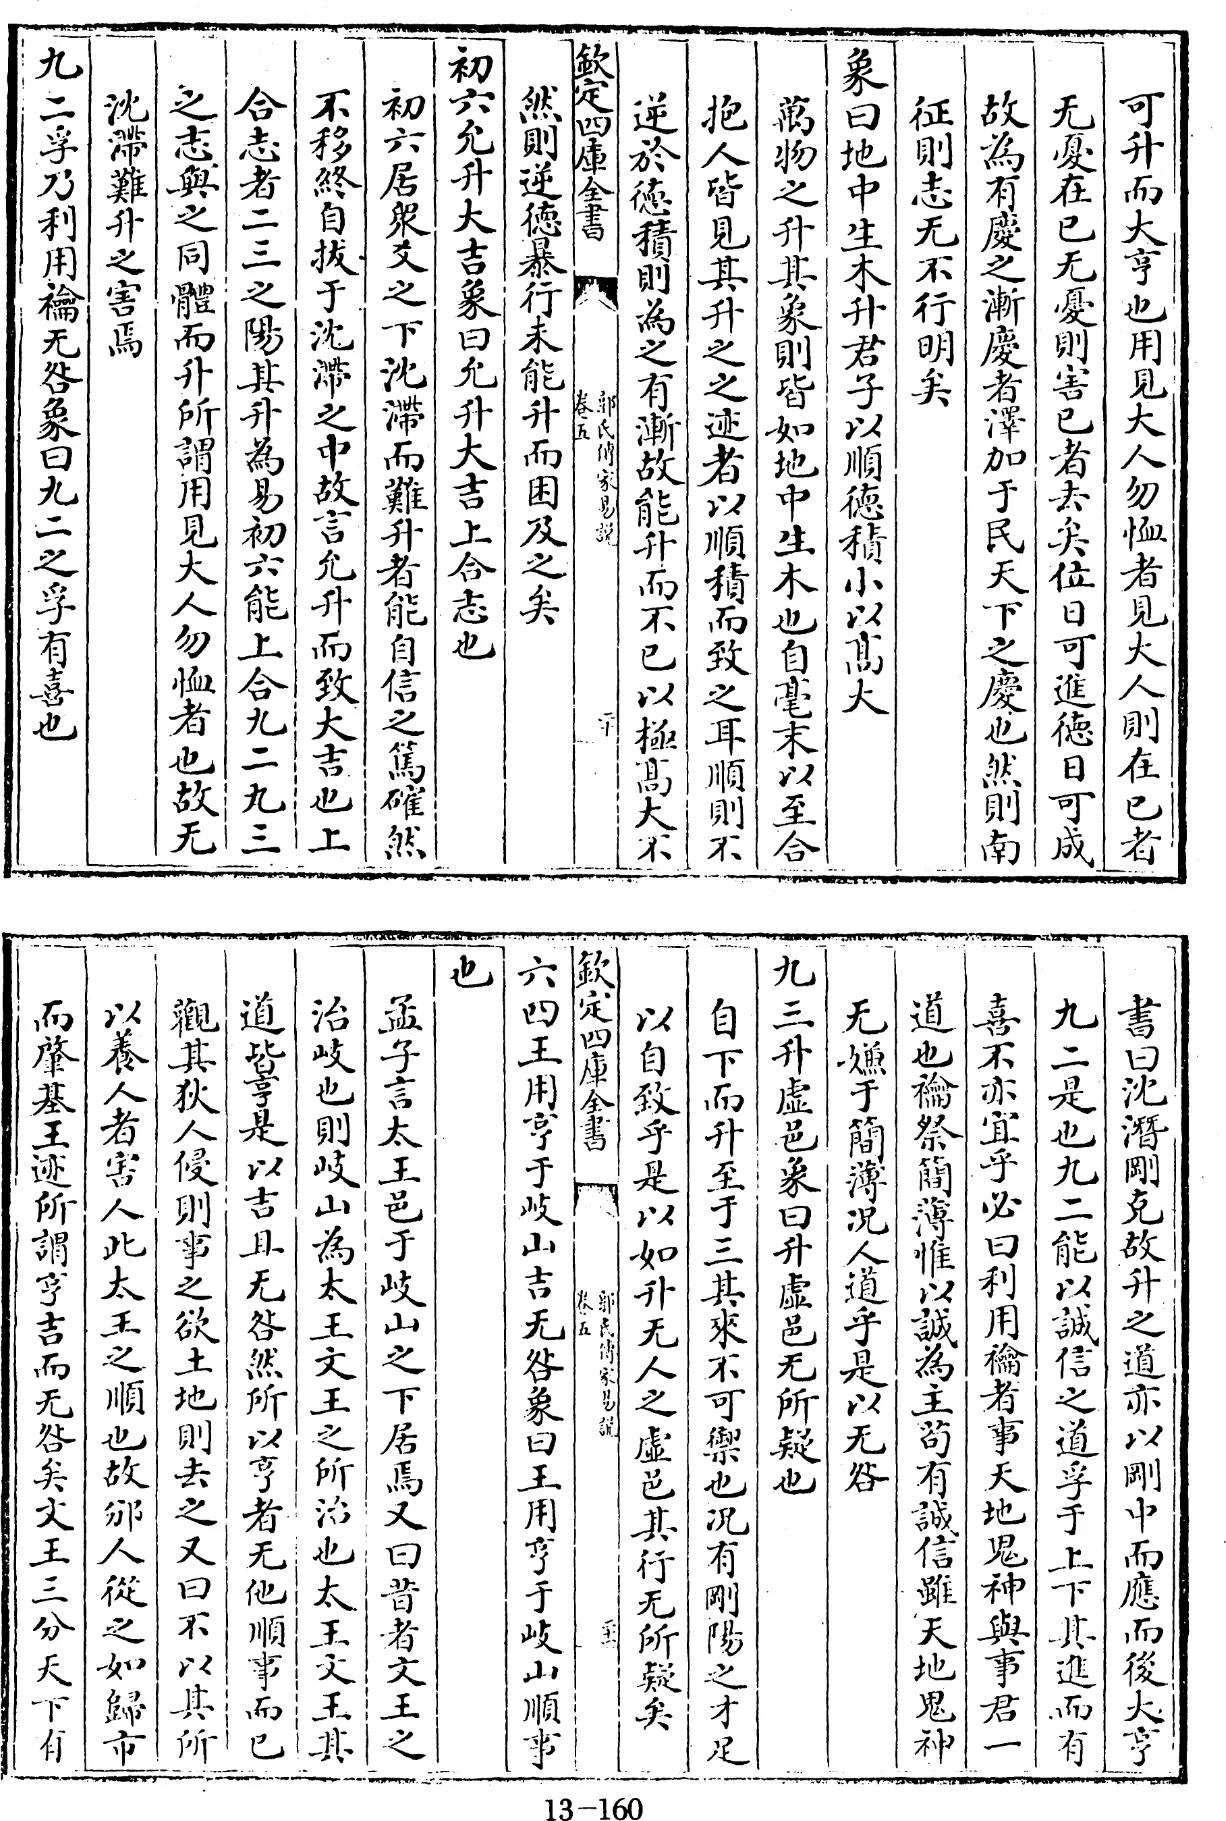 可升而大亨也用見大人勿恤者見大人則在已者
无憂在已无憂則害已者去矣位日可進德日可成
故為有慶之漸慶者澤加于民天下之慶也然則南
征則志无不行明矣
象曰地中生木升君子以順德積小以髙大
萬物之升其象則皆如地中生木也自毫末以至合
抱人皆見其升之之迹者以順積而致之耳順則不
逆於德積則為之有漸故能升而不已以極髙大不
欽定四庫全書
郭氏傳家易說
卷五
二十
然則逆德暴行未能升而困及之矣
初六允升大吉象曰允升大吉上合志也
初六居衆爻之下沈滯而難升者能自信之篤確然
不移終自拔于沈滯之中故言允升而致大吉也上
合志者二三之陽其升為易初六能上合九二九三
之志與之同體而升所謂用見大人勿恤者也故无
沈滯難升之害焉
九二孚乃利用禴无咎象曰九二之孚有喜也
書曰沈潛剛克故升之道亦以剛中而應而後大亨
九二是也九二能以誠信之道孚于上下其進而有
喜不亦宜乎必曰利用禴者事天地鬼神與事君一
道也禴祭簡薄惟以誠為主茍有誠信雖天地鬼神
无嫌于簡薄况人道乎是以无咎
九三升虛邑象曰升虛邑无所疑也
自下而升至于三其來不可禦也况有剛陽之才足
以自致乎是以如升无人之虛邑其行无所疑矣
欽定四庫全書
郭氏傳家易說
卷五
二十一
六四王用亨于岐山吉无咎象曰王用亨于岐山順事
也
孟子言太王邑于岐山之下居焉又曰昔者文王之
治岐也則岐山為太王文王之所治也太王文王其
道皆亨是以吉且无咎然所以亨者无他順事而已
觀其狄人侵則事之欲土地則去之又曰不以其所
以養人者害人此太王之順也故邠人從之如歸市
而肇基王迹所謂亨吉而无咎矣文王三分天下有
13-160